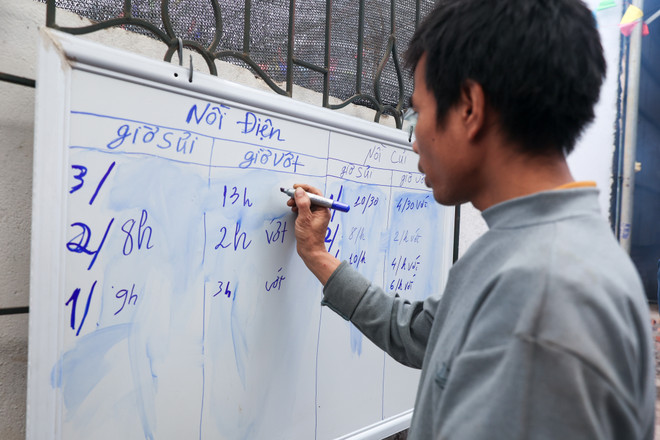 Nồi Điện Nồi Củi
giờ Sủi giờ vớt giờ Sủi giờ vớt
3/ 13h 1/ 20/30 4/30 vớt
2/ 8h 2h vớt 2/ 8/h 2/h vớt
10/h 4/h vớt
1/ 9h 3h vớt 6/h vớt